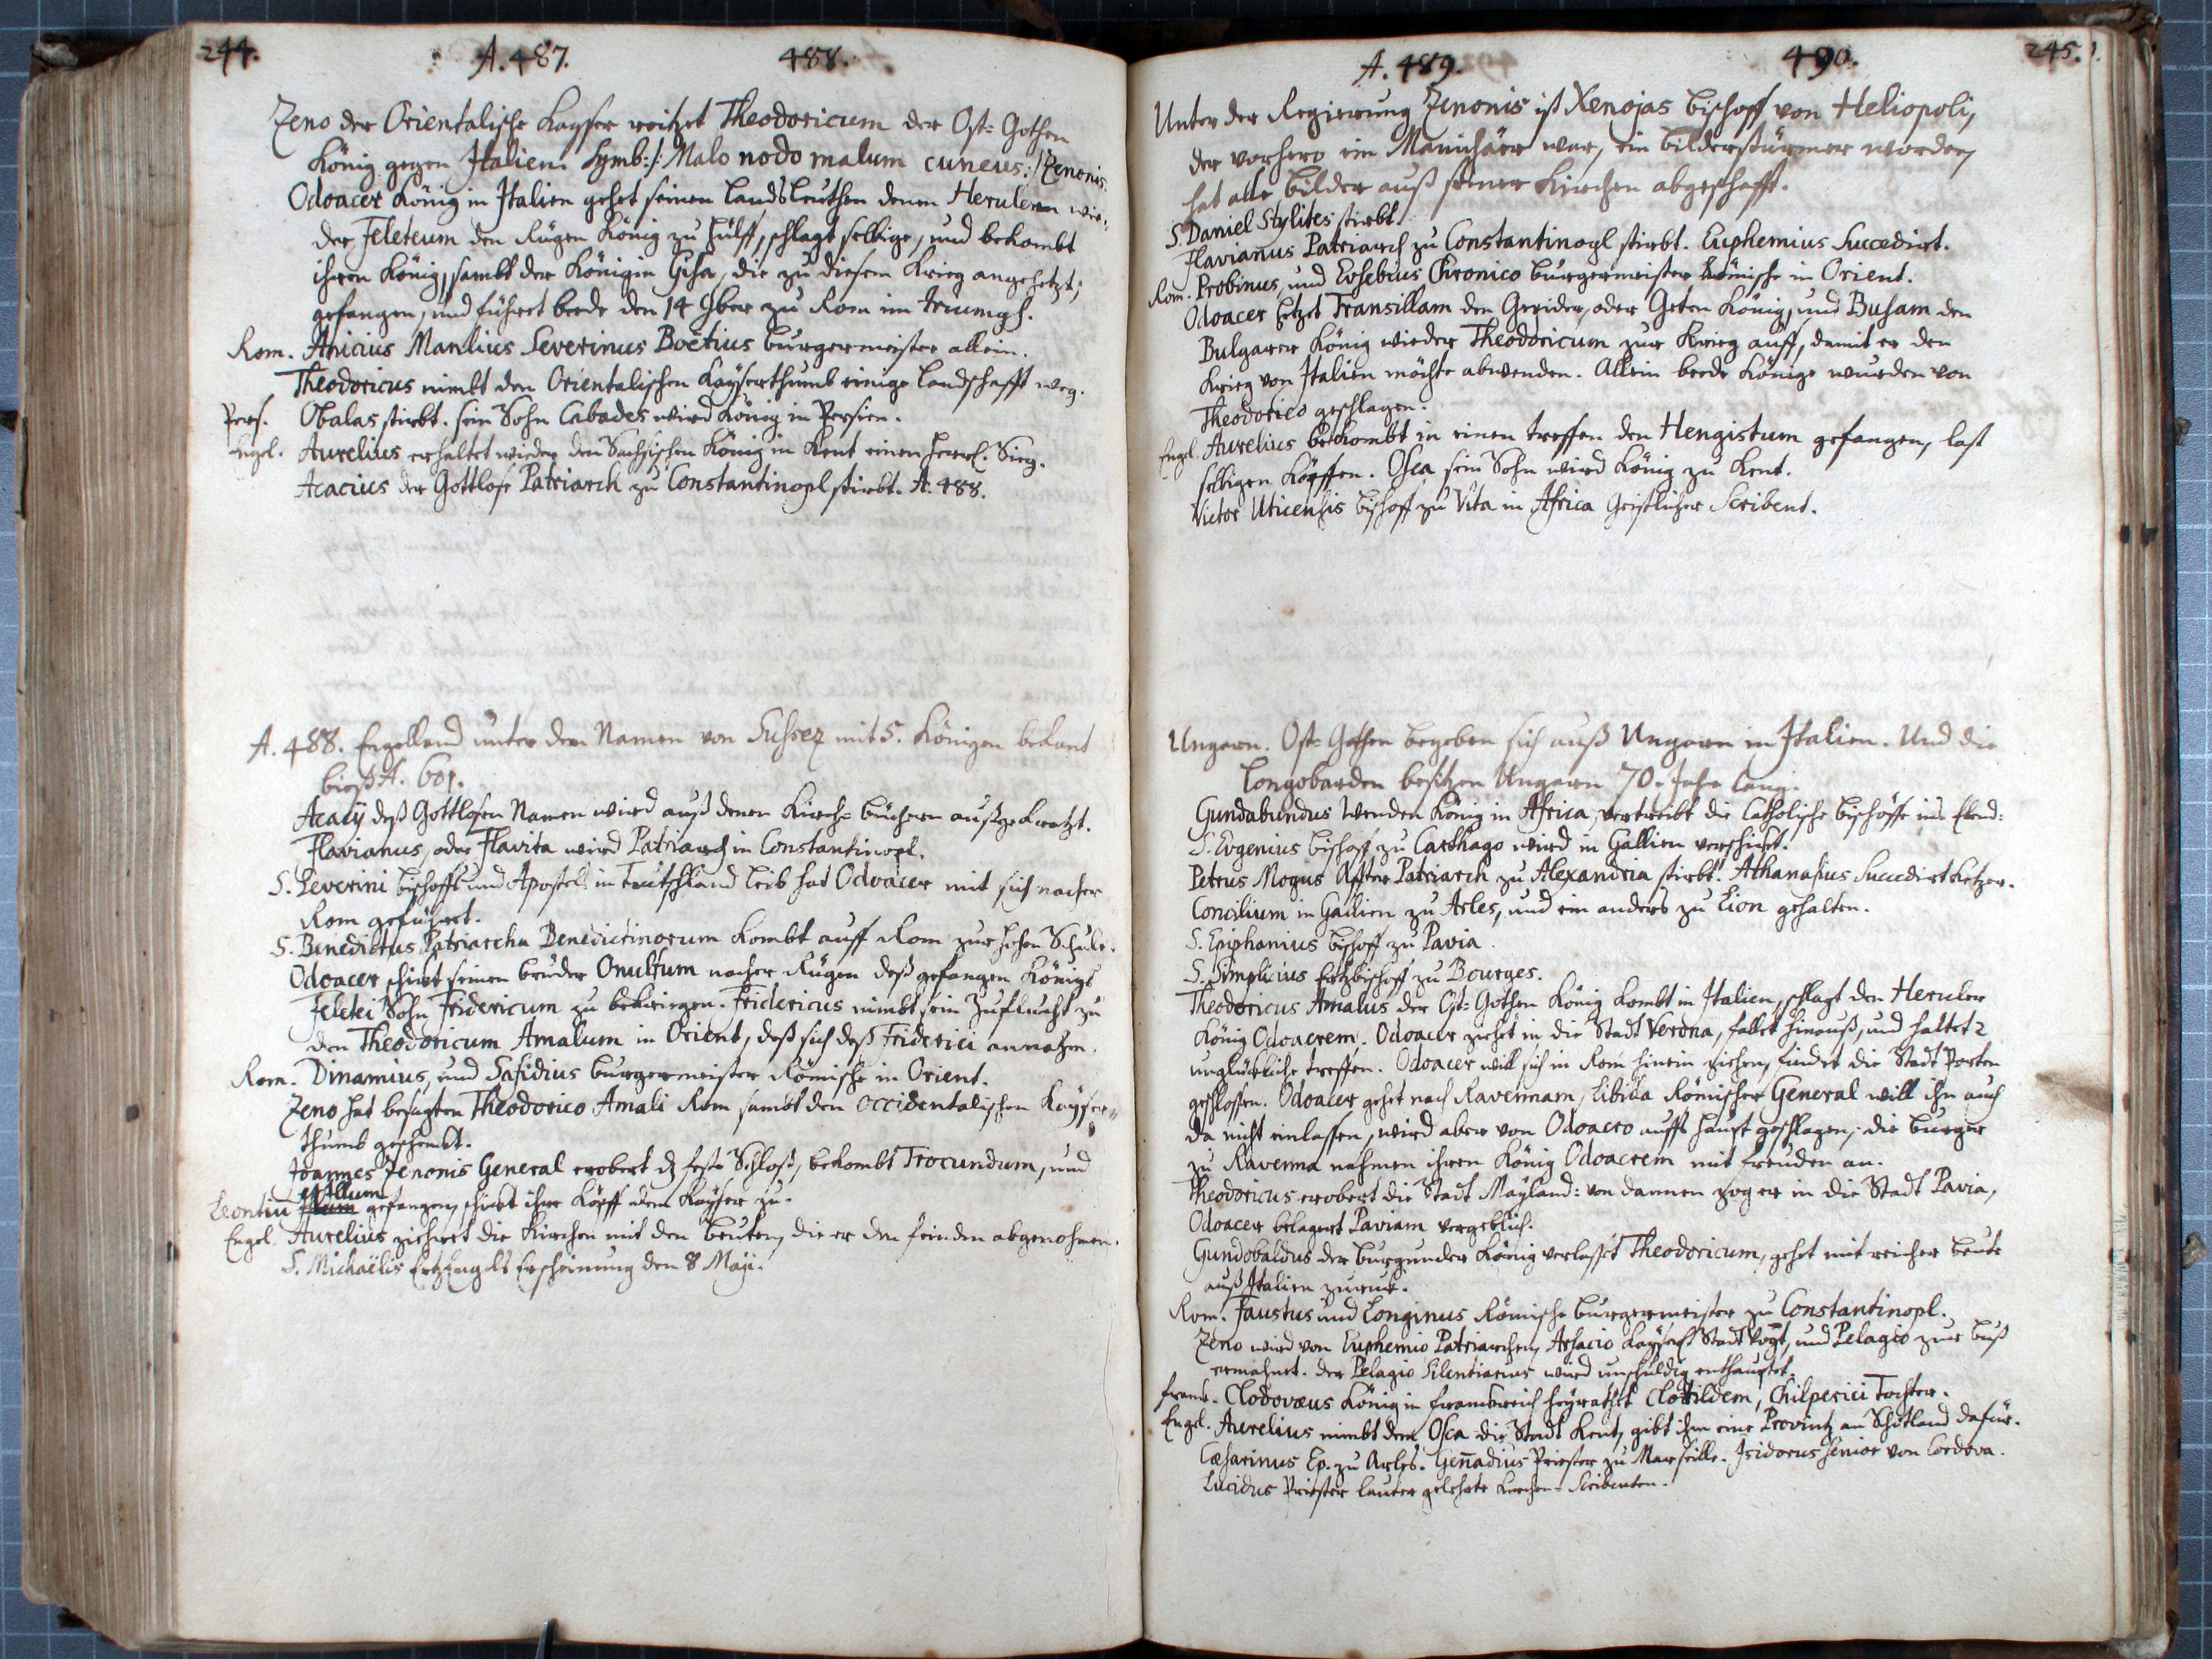 244. A. 487. 488.
Zeno der Orientalische Kayser reitzet Theodoricum der Ost-Gothen
König gegen Italien. Symb:/: Malo nodo malum cuneus:/ Zenonis.
Odoacer König in Italien gehet seinen Landsleuthen denen Herulern wie-
der Feleteum den Rügen König zu hülff, schlagt selbige, und bekombt
ihren König, sambt der Königin Gisa, die zu diesem Krieg angehetzt,
gefangen, und führet beede den 14 9ber zu Rom im triumph.
Rom. Anicius Manlius Severinus Boëtius burgermeister allein.
Theodoricus nimbt den Orientalischen Kayserthumb einige landschafft weg.
Pers. Obalas stirbt. sein Sohn Cabades wird König in Persien.
Engel. Aurelius erhaltet wieder den Sachsischen König in Kent einen herrl. Sieg.
Acacius der Gottlose Patriarch zu Constantinopl stirbt. A. 488.
A. 488. Engelland unter dem Namen von Sussex mit 5. Königen bekant
bieß A. 601.
Acacÿ deß Gottlosen Namen wird auß denen Kirch-büchern außgekratzt.
Flavianus, oder Flavita wird Patriarch in Constantinopl.
S. Severini bischoffs und Apostels in Teutschland leib hat Odoacer mit sich nacher
Rom geführet.
S. Benedictus Patriarcha Benedictinorum kombt auff Rom zur hohen Schule.
Odoacer schickt seinen bruder Onulfum nacher Rügen deß gefangen Königs
Feletei Sohn Fridericum zu bekriegen. Fridericus nimbt sein Zuflucht zu
den Theodoricum Amalum in Orient, deß sich deß Friderici annahm.
Rom. Dinamius, und Safidius burgermeister Römische in Orient.
Zeno hat besagten Theodorico Amali Rom sambt den occidentalischen Kayser-
thumb geschenkt.
Joannes Zenonis General erobert d feste Schloß, bekombt Trocundum, und
et Illum
Leontiu gefangen, schickt ihre Köpff dem Kayser zu.
Engel. Aurelius ziehret die Kirchen mit den beuten, die er den feinden abgenohmen.
S. Michaëlis ErtzEngels Erscheinung den 8 Maji.
A. 489. 490. 245.
Unter der Regierung Zenonis ist Xenojas bischoff von Heliopoli,
der vorhero ein Manichäer war, ein bilderstürmer worden,
hat alle bilder auß seiner Kirchen abgeschafft.
S. Daniel Stylites stirbt.
Flavianus Patriarch zu Constantinopl stirbt. Euphemius Succedirt.
Rom. Probinus, und Eusebius Chronico burgermeister Römische in Orient.
Odoacer hetzet Transillam den Gepider, oder Geten König, und Busam den
Bulgarer König wieder Theodoricum zur Krieg auff, damit er den
Krieg von Italien möchte abwenden. Allein beede Könige wurden von
Theodorico geschlagen.
Engel. Aurelius bekombt in einen treffen den Hengistum gefangen, last
selbigen Köpffen. Osca sein Sohn wird König zu Kent.
Victor Uticensis bischoff zu Vita in Africa Geistlicher Scribent.
Ungarn. Ost-Gothen begeben sich auß Ungarn in Italien. Und die
Longobarden besitzen Ungarn 70. Jahr lang.
Gundabundus Wenden König in Africa, vertreibt die Catholische bischöffe ins Elend:
S. Eugenius bischoff zu Carthago wird in Gallien verschickt.
Petrus Mogus Affter Patriarch zu Alexandria stirbt. Athanasius Succedirt ketzer.
Concilium in Gallien zu Arles, und ein anders zu Lion gehalten.
S. Epiphanius bischoff zu Pavia.
S. Simplicius Ertzbischoff zu Bourges.
Theodoricus Amalus der Ost-Gothen König kombt in Italien, schlagt den Heruler
König Odoacrem. Odoacer ziehet in die Stadt Verona, fallet hinauß, und haltet 2
unglückliche treffen. Odoacer will sich in Rom hinein ziehen, findet die Stadt Porten
geschlossen. Odoacer gehet nach Ravennam, Libilla Römischer General will ihn auch
da nicht einlassen, wird aber von Odoacro auffs haupt geschlagen, die burger
zu Ravenna nahmen ihren König Odoacrem mit freuden an.
Theodoricus erobert die Stadt Mayland: von dannen zog er in die Stadt Pavia,
Odoacer belagert Paviam vergeblich.
Gundobaldus der burgunder König verlasset Theodoricum, gehet mit reicher beute
auß Italien zuruck.
Rom. Faustus und Longinus Römische burgermeister zu Constantinopl.
Zeno wird von Euphemio Patriarchen, Arsacio Kaysers Stadt Vogt, und Pelagio zur buß
ermahnet. der Pelagio Silentiarius wird unschuldig enthauptet.
franck. Clodovæus König in franckreich heyrathet Clotildem, Chilperici Tochter.
Engel. Aurelius nimbt dem Osca die Stadt Kent, gibt ihm eine Provintz an Schotland dafür.
Cæsarinus Ep. zu Arles. Gen̄adius Priester zu Marseille. Isidorus senior von Cordova.
Lucidus Priester lauter gelehrte Kirchen-Scribenten.